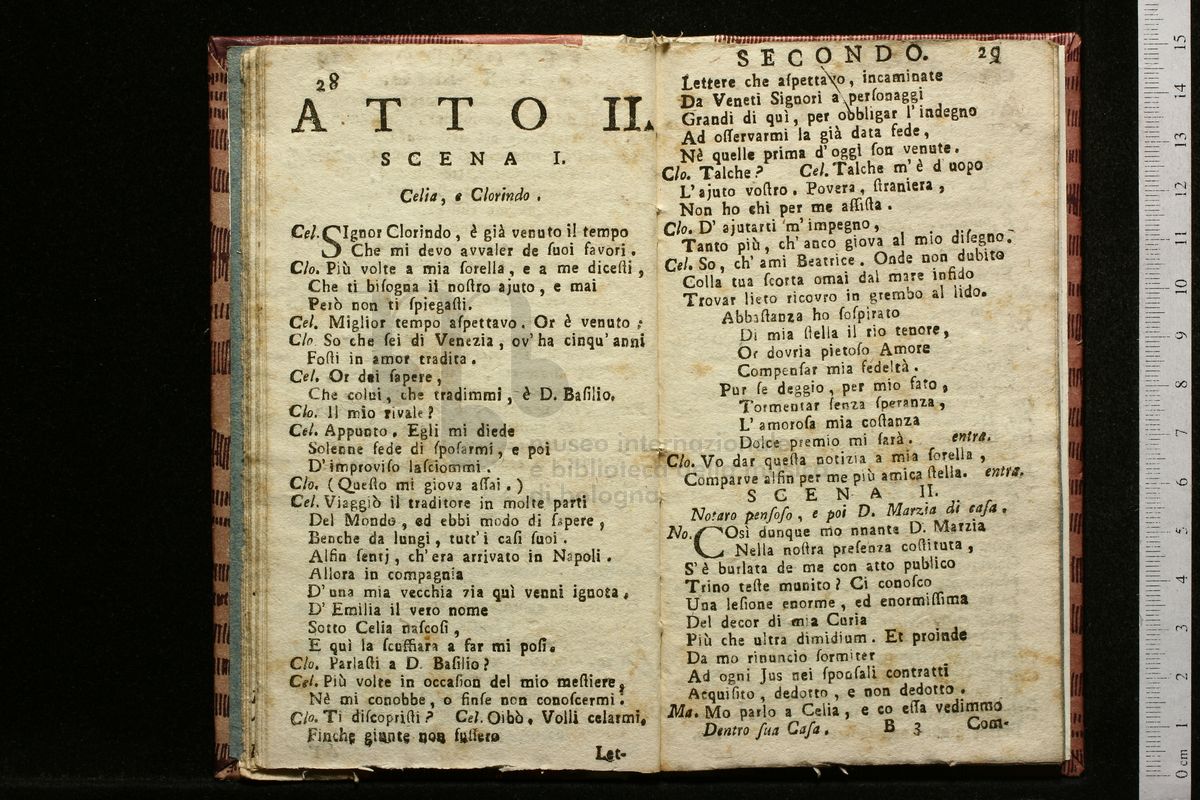 28
ATTO II.
SCENA I.
Celia, e Clorindo.
Cel. SIgnor Clorindo, è già venuto il tempo
Che mi devo avvaler de ſuoi favori.
Clo. Più volte a mia ſorella, e a me diceſti,
Che ti biſogna il noſtro ajuto, e mai
Però non ti ſpiegaſti.
Cel. Miglior tempo aſpettavo. Or è venuto;
Clo. So che ſei di Venezia, ov' ha cinqu' anni
Foſti in amor tradita.
Cel. Or dei ſapere,
Che colui, che tradimmi, è D. Baſilio.
Clo. Il mio rivale?
Cel. Appunto. Egli mi diede
Solenne fede di ſpoſarmi, e poi
D' improviſo laſciommi.
Clo. (Queſto mi giova aſſai.)
Cel. Viaggiò il traditore in molte parti
Del Mondo, ed ebbi modo di ſapere,
Benche da lungi, tutt' i caſi ſuoi.
Alfin ſentj, ch' era arrivato in Napoli.
Allora in compagnia
D' una mia vecchia zia quì venni ignota.
D' Emilia il vero nome
Sotto Celia naſcoſi,
E quì la ſcuffiara a far mi poſi.
Clo. Parlaſti a D. Baſilio?
Cel. Più volte in occaſion del mio meſtiere,
Nè mi conobbe, o finſe non conoſcermi.
Clo. Ti diſcopriſti? Cel. Oibò. Volli celarmi,
Finche giunte non fuſſero
Let-
SECONDO. 29
Lettere che aſpettavo, incaminate
Da Veneti Signori a perſonaggi
Grandi di quì, per obbligar l' indegno
Ad oſſervarmi la già data fede,
Nè quelle prima d' oggi ſon venute.
Clo. Talche? Cel. Talche m' è d uopo
L' ajuto voſtro. Povera, ſtraniera,
Non ho chi per me aſſiſta.
Clo. D' ajutarti m' impegno,
Tanto più, ch' anco giova al mio diſegno.
Cel. So, ch' ami Beatrice. Onde non dubito
Colla tua ſcorta omai dal mare infido
Trovar lieto ricovro in grembo al lido.
Abbaſtanza ho ſoſpirato
Di mia ſtella il rio tenore,
Or dovria pietoſo Amore
Compenſar mia fedeltà.
Pur ſe deggio, per mio fato,
Tormentar ſenza ſperanza,
L' amoroſa mia coſtanza
Dolce premio mi ſarà. entra.
Clo. Vo dar queſta notizia a mia ſorella,
Comparve alfin per me più amica ſtella. entra.
SCENA II.
Notaro penſoſo, e poi D. Marzia di caſa.
No. COsì dunque mo nnante D. Marzia
Nella noſtra preſenza coſtituta,
S' è burlata de me con atto publico
Trino teſte munito? Ci conoſco
Una leſione enorme, ed enormiſſima
Del decor di mia Curia
Più che ultra dimidium. Et proinde
Da mo rinuncio formiter
Ad ogni Jus nei ſponſali contratti
Acquiſito, dedotto, e non dedotto.
Ma. Mo parlo a Celia, e co eſſa vedimmo
Dentro ſua Caſa. B 3 Com-
museo internazionale
e biblioteca della musica
di bologna
0 cm 1 2 3 4 5 6 7 8 9 10 11 12 13 14 15